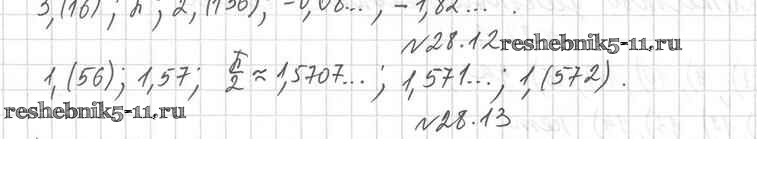 3,(16); π; 2,(136); -0,08...; -1,82... .
№28.12
reshebnik5-11.ru
1,(56); 1,57; π/2 ≈ 1,5707...; 1,571...; 1,(572).
reshebnik5-11.ru
№28.13